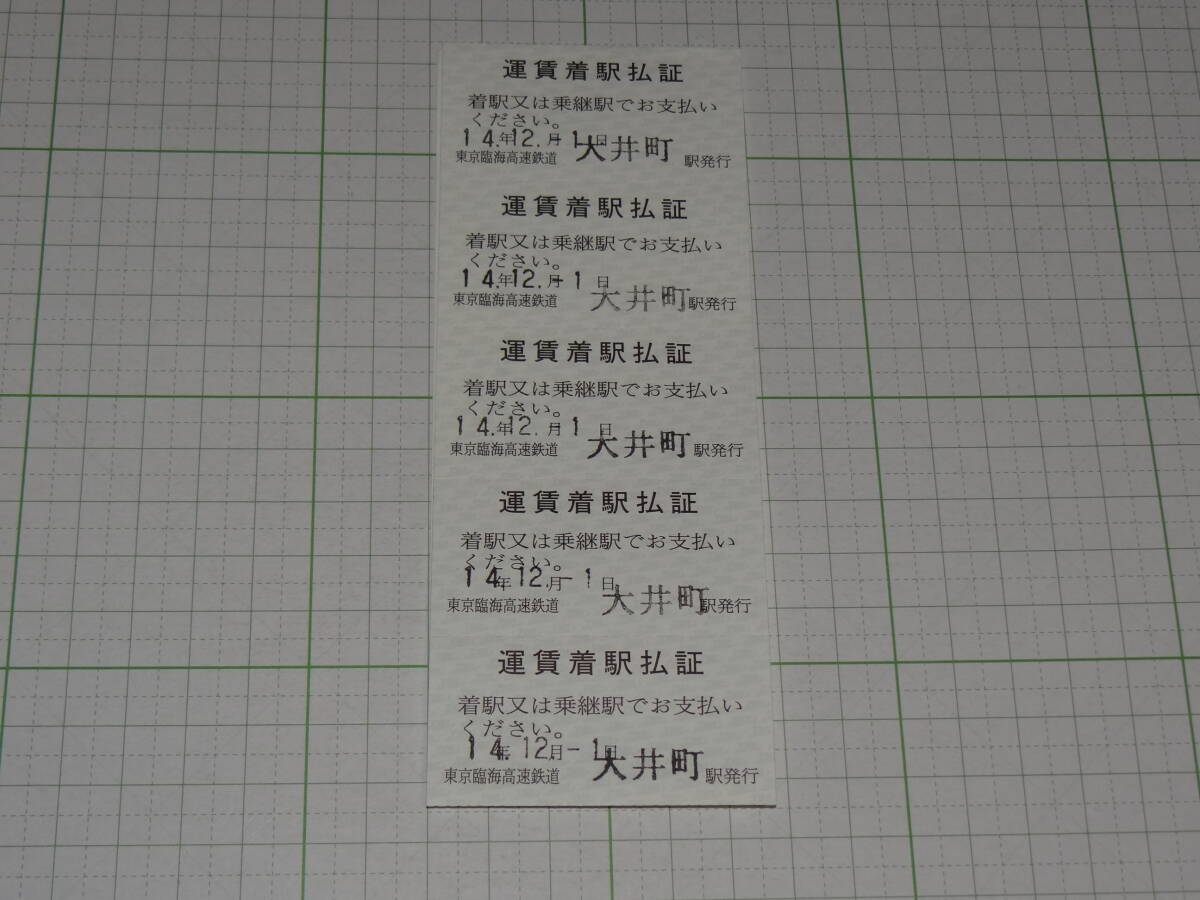 運賃着駅払証
着駅又は乗継駅でお支払い
ください。
14.年12.月-1日
東京臨海高速鉄道 大井町 駅発行
運賃着駅払証
着駅又は乗継駅でお支払い
ください。
14.年12.月-1日
東京臨海高速鉄道 大井町 駅発行
運賃着駅払証
着駅又は乗継駅でお支払い
ください。
14.年12.月-1日
東京臨海高速鉄道 大井町 駅発行
運賃着駅払証
着駅又は乗継駅でお支払い
ください。
14.年12.月-1日
東京臨海高速鉄道 大井町 駅発行
運賃着駅払証
着駅又は乗継駅でお支払い
ください。
14.年12.月-1日
東京臨海高速鉄道 大井町 駅発行